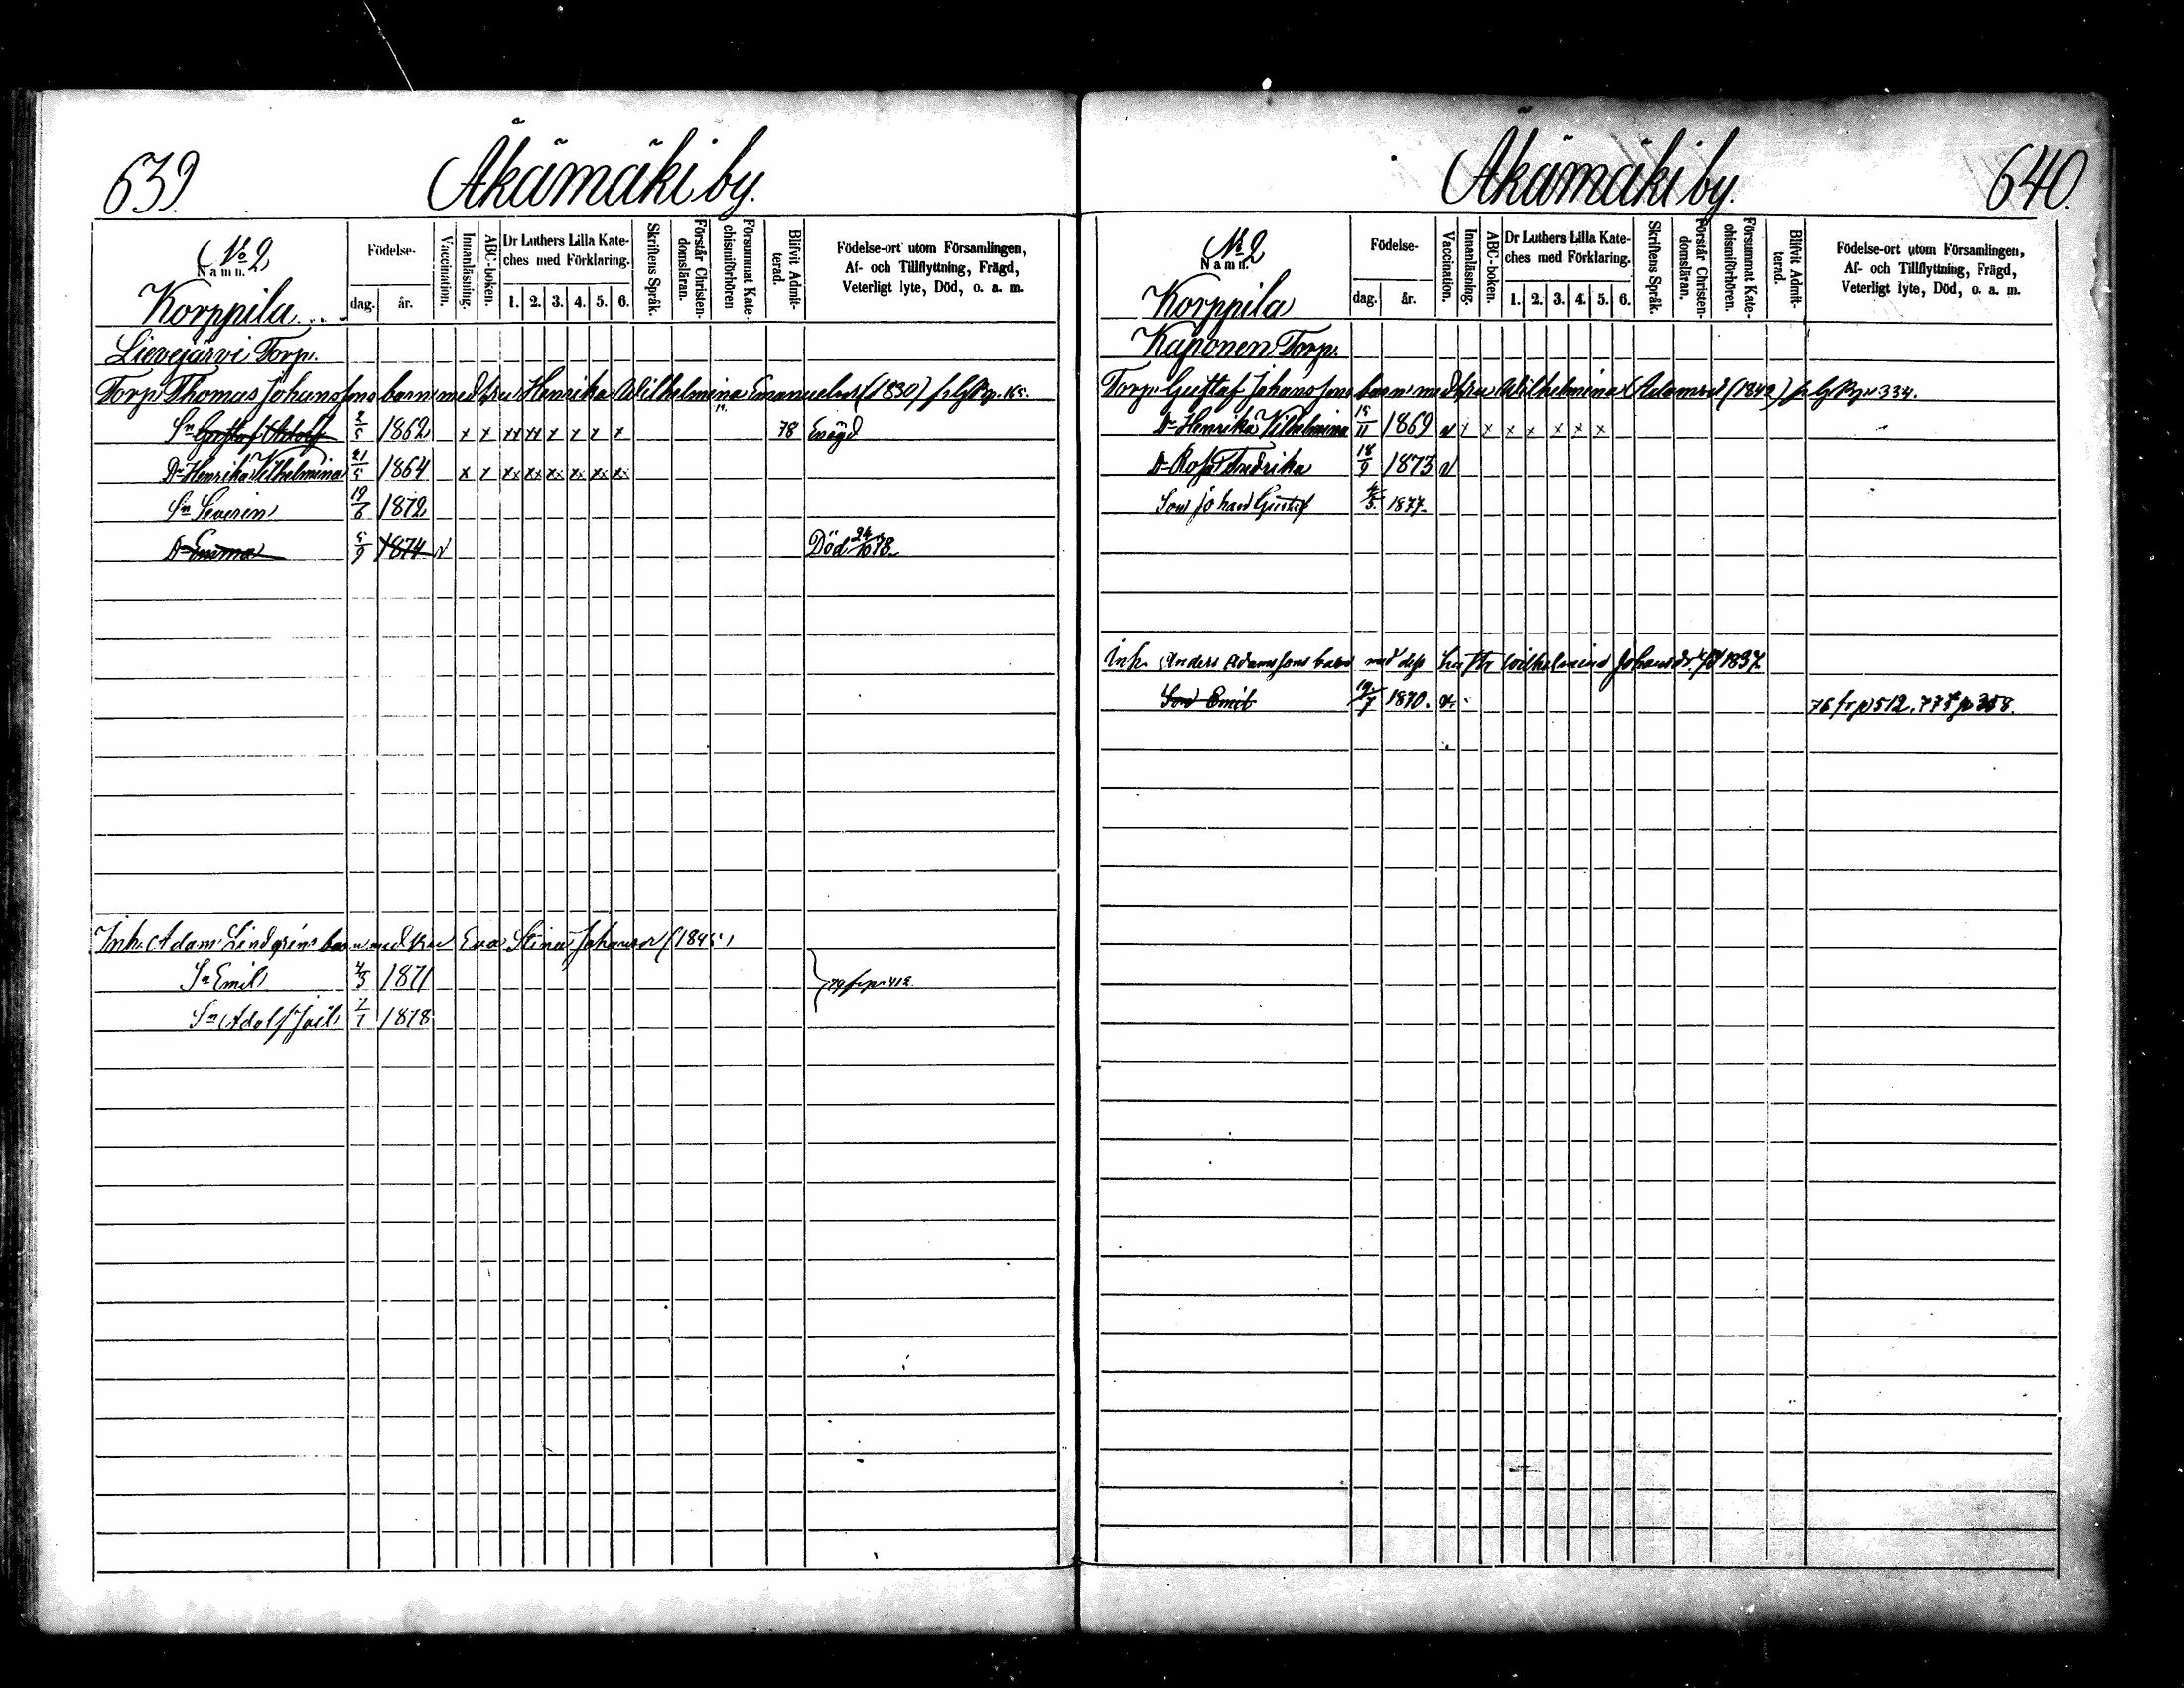 639.
Äkämäki by.
No 2
Namn.
Korppila
Födelse-
dag.
år.
Vaccination.
Innanläsning.
ABC-boken.
Dr Luthers Lilla Kate-
ches med Förklaring.
1. 2. 3. 4. 5. 6.
Skriftens Språk.
Förstår Christen-
domsläran.
Försummat Kate-
chismiförhören
Blifvit Admit-
terad.
Födelse-ort utom Församlingen,
Af- och Tillflyttning, Frägd,
Veterligt lyte, Död, o. a. m.
Lievejärvi Torp.
Torp. Thomas Johanssons barn med hru Henrika Wilhelmina Emanuelsdr (1830)
Sn Gustaf Adolf 2/5 1862 x x xx xx x x x x 78 Enögd
Dr Henrika Vilhelmina 21/5 1864 x x xx xx xx xx xx xx
Sn Severin 19/6 1872
Dr Emma 5/9 1874 v Död 24/10 78.
Inh. Adam Lindgrens barn med hru Eva Stina Johansdr
Sn Emil 4/3 1871 79 fr p 412.
Sn Adolf Joel 2/1 1878
640.
Äkämäki by.
No 2
Namn.
Korppila
Födelse-
dag.
år.
Vaccination.
Innanläsning.
ABC-boken.
Dr Luthers Lilla Kate-
ches med Förklaring.
1. 2. 3. 4. 5. 6.
Skriftens Språk.
Förstår Christen-
domsläran.
Försummat Kate-
chismiförhören.
Blifvit Admit-
terad.
Födelse-ort utom Församlingen,
Af- och Tillflyttning, Frägd,
Veterligt lyte, Död, o. a. m.
Kaponen Torp.
Torp. Gustaf Johanssons barn med hru Wilhelmina Adamsdr (1842) 334.
Dr Henrika Vilhelmina 15/11 1869 v x x x x x x x
Dr Rosa Fredrika 18/9 1873 v
Son Johan Gustaf 4/3 1877.
Inh. Anders Adamssons barn med dess hustr Wilhelmina Johansdr 1837.
Son Emil 19/7 1870. v. 76 fr p 512. 77 t p 358.